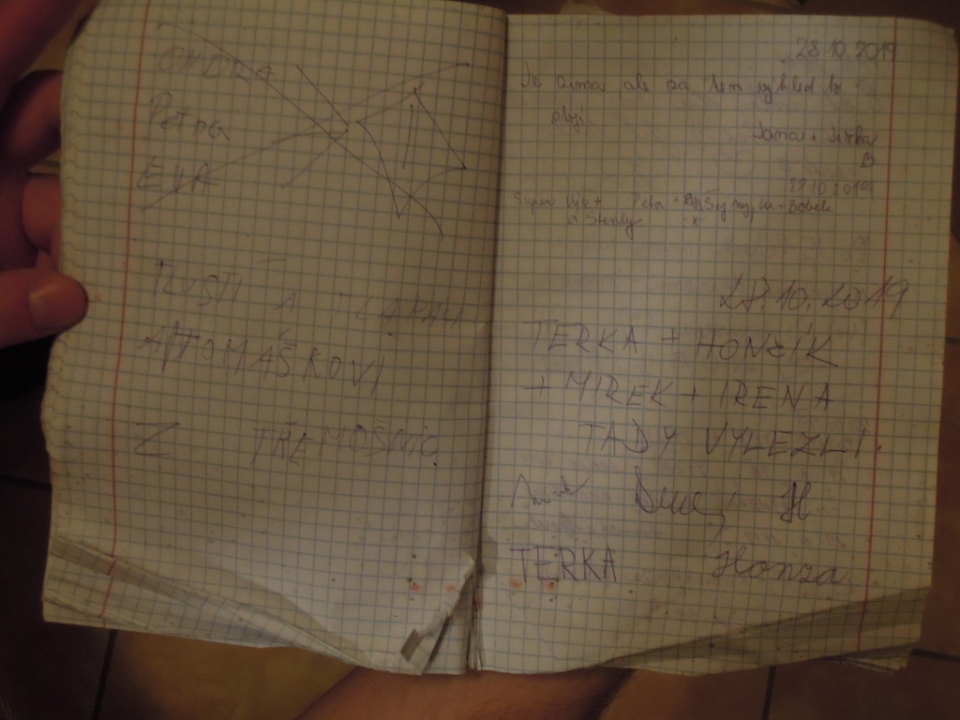 ONDRA
Petra
EVA
TLUSTÍ A
A TOMÁŠKOVI
Z TŘEMOŠNIC
28.10.2019
Je zima, ale za ten výhled to
stojí
Jana + Jirka
28.10.2019
Super výlet Péťa +
28.10.2019
TERKA + HONZÍK
+ MIREK + IRENA
TADY VYLEZLI.
H
TERKA Honza